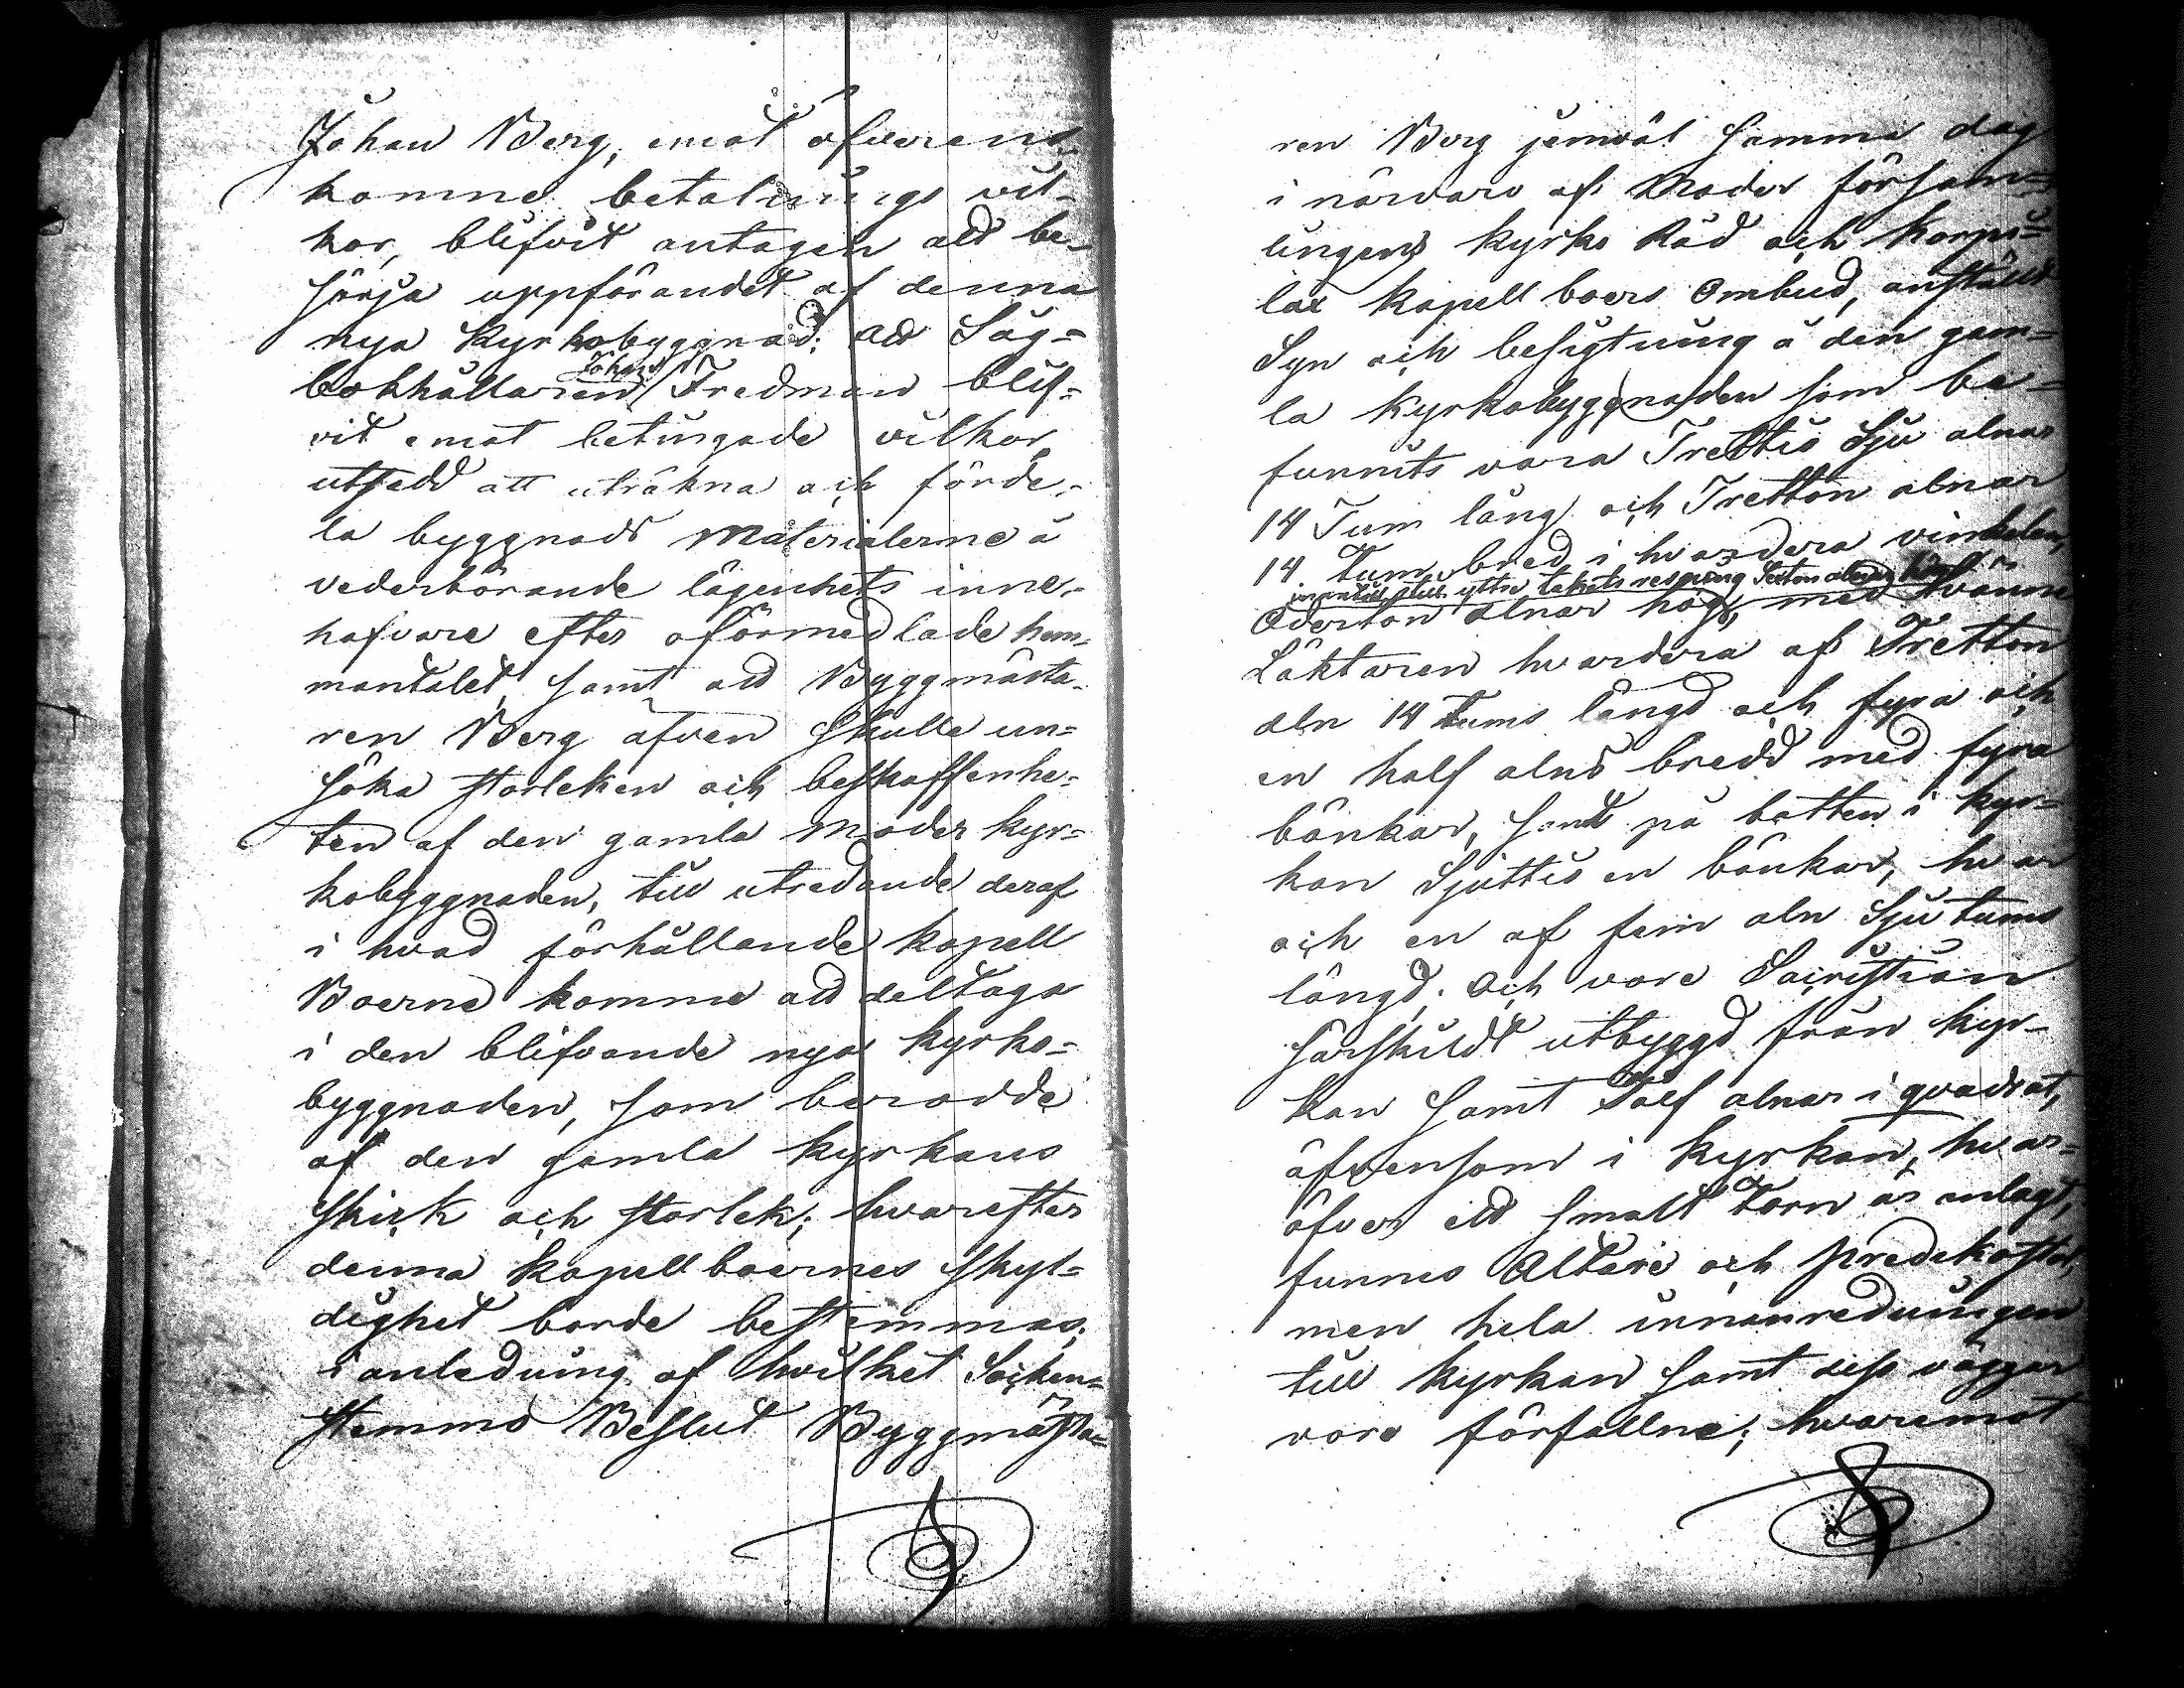 Johan Berg, emot öfverens
komne betalnings vil-
kor, blifvit antagen att be-
sörja uppförandet af denna
nya kyrkobyggnad; att Såg-
Johan
bokhållaren Fredman blif-
vit emot betingade vilkor
utsedd att uträkna och förde-
la byggnads Materialerne å
vederbörande lägenhets inne-
hafvare efter oförmedlade hem-
mantalet, samt att Byggmästa-
ren Berg äfven skulle un-
söka storleken och beskaffenhe-
ten af den gamla Moder kyr-
kobyggnaden, till utredande deraf
i hvad förhållande kapell
Boerne komme att deltaga
i den blifvande nya kyrko-
byggnaden, som berodde
af den gamla kyrkans
skick och storlek; hvarefter
denna kapellboernes skyl-
dighet borde bestemmas;
i anledning af hvilket Socken-
stemmo Beslut Byggmästa-
ren Berg jemväl samma dag
i närvaro af Moder försam-
lingens kyrko Råd och Korpi-
lax kapell boers Ombud, anstäldt
Syn och besigtning å den gam-
la kyrkobyggnaden som be-
funnits vara Trettio Sju alnar
14 Tum lång och Tretton alnar
14. tum bred i hvardera vinkelen,
yttre takets resning Sexton alnar
Aderton alnar hög, med tvänne
Läktaren hvardera af Tretton
aln 14 tums längd och fyra och
en half alns bredd med fyra
bänkar, samt på botten i kyr-
kan Sjuttio en bänkar, hvar
och en af fem aln Sju tums
längd; Och vore Sacristian
särskildt utbyggd från kyr-
kan samt Tolf alnar i qvadrat,
äfvensom i kyrkan, hvar-
öfver ett smalt torn är anlagt,
funnes Altare och predikostol,
men hela innanredningen
till kyrkan samt dess väggar
vore förfallne; hvaremot